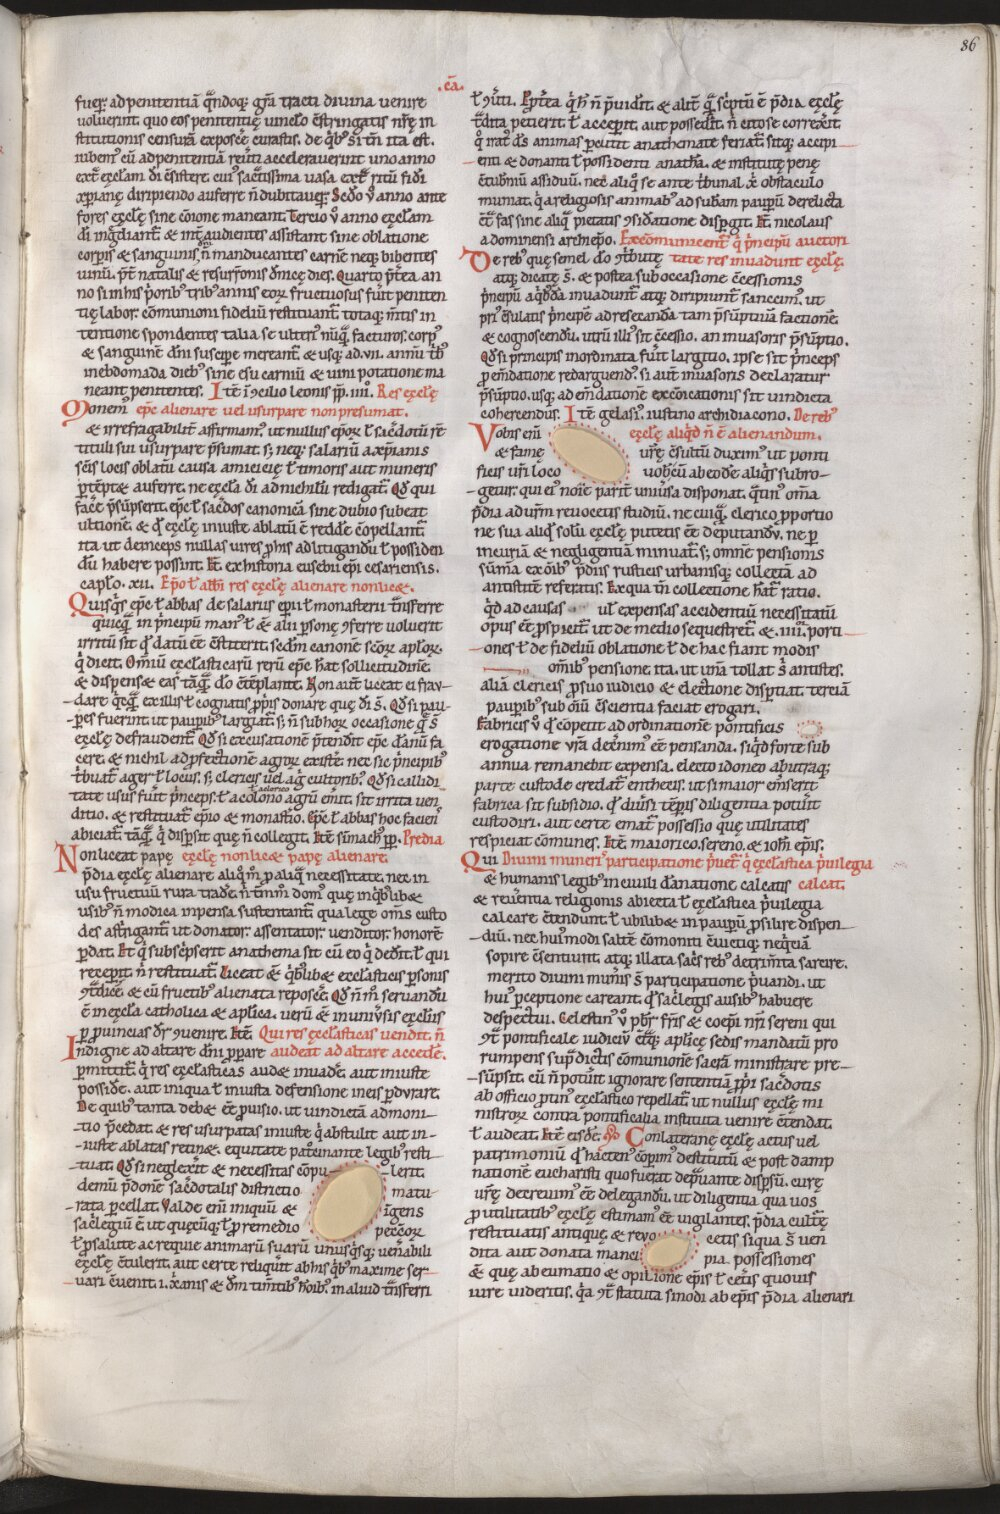 86
.cā.
fuer̄. ad penitentiā q̄ndoq; gr̄a tracti divina venire
voluerint. quo eos penitentię vinclo c̄stringatis nr̄ę in
stitutionis censurā exposcē curastis. de q̄b; si tn̄ ita est.
iubem; eū ad penitentiā rev̄ti acceleraverint uno anno
ext̄ ecclam dī c̄sistere. cui; sac̄tissima vasa ext̄ ritū fidī
xp̄ianę diripiendo auferre n̄ dubitauer̄. Scd̄o v̄ anno ante
fores eccl̄ę sine cōione maneant. Tercio v̄ anno eccl̄am
dī ingdiant̄ & int̄ audientes assistant sine oblatione
corpis & sanguinis n̄ manducantes carnē neq; bibentes
vinū. p̄t natalis & resurr̄onis dn̄icę dies. Quarto p̄t̄ea an
no si in his p̄orib; trib; annis eor̄ fructuosus fūit peniten
tię labor. cōmunioni fideliū restituant̄ totaq; m̄tis in
tentione spondentes talia se ulteri; nūq̄ facturos. corp̄
& sanguinē dn̄i suscipe mereant̄ & usq; ad .vii. annū t̄b;
in ebdomada dieb; sine esu carniū & vini potatione ma
neant penitentes. Itē in c̄cilio leonis pp̄. iiii. Res eccl̄ę
Monem; epc̄ alienare vel usurpare non presumat.
& irrefragabilit̄ affirmam; ut nullus ep̄or̄ l̄ sac̄dotū rē
tituli sui usurpare p̄sumat. s; neq; salariū a xp̄ianis
sc̄is locis oblatū causa amicicię l̄ timoris aut muneris
p̄t̄eptę auferre. ne eccl̄a dī ad nichilū redigat̄. Qd̄ qui
facē p̄sūpserit. epc̄ l̄ sac̄dos canonicā sine dubio subeat
ultionē. & q̄ eccl̄ę iniuste ablatū ē reddē c̄pellant̄
ita ut deinceps nullas vires p̄ his ad litigandū l̄ possiden
dū habere possint. It̄. ex historia eusebii ep̄i cesariensis.
caplo. xii. Ep̄o l̄ abb̄i res eccl̄ę alienare non lic&.
Quisq̄s epc̄ l̄ abbas de salariis ep̄ii l̄ monasterii t̄nsferre
quicq̄ in p̄ncipū man; l̄ ē alii p̄sonę 9ferre voluerit
irritū sit q̄ datū ēc̄stiterit. scd̄m canonē sc̄or̄ ap̄lor̄.
q̄ dicit. Om̄iū eccl̄asticarū rerū epc̄ hāt sollicitudinē.
& dispens& eas tāq̄ dō c̄tēplante. Non aut̄ liceat ei frau-
dare q̄cq̄ ex illis l̄ cognatis p̄p̄iis donare quę dī s̄. Qd̄ si pau-
p̄es fuerint. ut paupib; largiat̄. s; n̄ sub hor̄ occasione q̄ s̄
eccl̄ę defraudent̄. Qd̄ si excusationē p̄tendit epc̄ dānū fa
cere. & nichil ad p̄fectionē agror̄ existē. nec sic p̄ncipib;
t̄buat̄ ager l̄ locus. s; clericis vel aḡcultorib;. Qd̄ si callidi
tate usus fūit p̄nceps. l̄ a colono agrū em̄it. sit irrita ven
ditio. & restituat̄ ep̄io & monast̄io. Epc̄ l̄ abbas hoc faciens
abiciat̄ tāq̄ q̄ dispsit quę n̄ collegit. Itē simach; pp̄. Predia
Non liceat papę eccl̄ę non lic& papę alienare.
p̄dia eccl̄ę alienare aliq̄m p̄ aliq̄ necessitate. nec in
usu fructuū rura tradē. n̄ t̄m̄m dom; quę in q̄b;lib&
usib; n̄ modica inpensa sustentant̄. qua lege om̄s custo
des ast̄ngant̄ ut donator. assentator. venditor. honorē
p̄dat. & q̄ subsc̄pserit anathema sit cū eo q̄ dedit. l̄ qui
recepit. n̄ restituat̄. Liceat & q̄b;lib& eccl̄asticis p̄sonis
9t̄dicē. & cū fructib; alienata reposcē. Qd̄ n̄ m̄ servandū
ē in eccl̄a catholica & ap̄lica. verū & in univ̄sis eccl̄iis
p̄ provincias dr̄ 9venire. Itē. Qui res eccl̄asticas vendit. n̄
Indigne ad altare dn̄i p̄pare audeat ad altare accedē.
p̄mittit̄ q̄ res eccl̄asticas aud& invadē. aut iniuste
possidē. aut iniqua l̄ iniusta defensione in eis p̄durare.
De quib; tanta deb& ēē p̄visio. ut vindictā admoni-
tio p̄cedat. & res usurpatas iniuste q̄ abstulit aut in-
iuste ablatas retin&. equitate pat̄tmitante legib; resti-
tuat. Qd̄ si neglexit & necessitas cōpulerit.
demū p̄donē sac̄dotalis districtio matu
rata pcellat. Valde eni iniquū & igens
sac̄legiū ē ut quęcūq; l̄ p̄ remedio peccor̄
l̄ p̄ salute ac requie animarū suarū unusq̄sq; ven̄abili
eccl̄ę c̄tulerit. aut certe reliq̄it ab his q̄b; maxime ser-
vari c̄venit. i. x̄anis & dm̄ tim̄tib; hoīb;. in aliud t̄nsferri
l̄ 9v̄ti. P̄p̄t̄ea q̄ h̄ n̄ p̄vidit̄. & alit̄ q̄ sc̄ptū ē p̄dia eccl̄ę
t̄dita petierit l̄ acceperit. aut possedit̄. n̄ cito se correxit̄
q̄ irat; ds̄ animas p̄cutit anathemate feriat̄. sitq; accipi
enti & donanti l̄ possidenti anath̄a. & institutę penę
c̄tub̄niū assiduū. nec aliq̄ se ante t̄bunal x̄ obstaculo
muniat. q̄ a religiosis animab; ad subām paupū derelicta
c̄t̄ fas sine aliq̄ pietatis 9sid̄atione disp̄git. It̄. nicolaus
adominensi archiep̄o. Excōmunicent̄ q̄ p̄ncipū auctori
De reb; quę semel dō 9t̄butę tate res invadunt eccl̄ę.
atq; dicatę s̄. & postea sub occasione c̄cessionis
p̄ncipū a q̄b;dā invadunt̄ atq; diripiunt̄ sanccim;. ut
pri; c̄sulatis p̄ncipē ad resecanda tam p̄sūptiuā factionē.
& cognoscendū. utrū illi; sit c̄cessio. an invasoris p̄sūptio.
Qd̄ si principis inordinata fūit largitio. ipse sit p̄nceps
p̄ em̄datione redarguend;. si aut̄ invasoris declaratur
p̄sūptio. usq; ad em̄dationē excōicationis sit vindicta
cohercendus. Itē gelasi; iustino archidiacono. De reb;
Vobis eni eccl̄ę aliq̄d n̄ ē alienandum.
& famę vr̄ę c̄sultū duxim; ut ponti
ficis vr̄i loco vob̄cū ab eodē aliq̄s subro-
getur. qui ei; noīe parit̄ univ̄sa disponat. q̄tin; om̄ia
p̄dia ad vr̄m revocetis studiū. ne cuiq̄ clerico p̄ portio
ne sua aliq̄ solū eccl̄ę putetis ēē deputandū. ne p̄
incuriā & negligentiā minuat̄. s; omnē pensionis
sūmā ex ōib; p̄diis rusticis urbanisq; collectā ad
antistitē referatis. Ex qua tn̄ collectione hāt̄ ratio.
q̄d ad causas vl̄ expensas accidentiū necessitatū
opus ēē p̄spicit̄. ut de medio sequestret̄. & .iiii. porti
ones l̄ de fideliū oblatione l̄ de hac fiant modis
omib; pensione. ita. ut unā tollat s̄ antistes.
aliā clericis p̄ suo iudicio & electione disptiat. terciā
paupib; sub om̄i c̄scientia faciat erogari.
Fabricis v̄ q̄ c̄petit ad ordinationē pontificis
erogatione vr̄a decernim; ēē pensanda. siq̄d forte sub
annua remanebit expensa. electo idoneo ab utraq;
parte custode credat̄ enthecis. ut si maior em̄serit
fabrica sit subsidio. q̄ div̄si tēpis diligentia potuīt
custodiri. aut certe emat̄ possessio quę utilitates
respiciat cōmunes. Itē. maiorico. sereno. & ioh̄i ep̄is.
Qui Divini muneri; participatione p̄vet̄ q̄ eccl̄astica p̄vilegia
& humanis legib; in civili dānatione calcatis calcat.
& rev̄entia religionis abiecta l̄ eccl̄astica p̄vilegia
calcare c̄tendunt. l̄ ubilib& in paupū p̄silire dispen-
diū. nec hui;modi saltē cōmoniti c̄victiq; neq̄quā
sopire c̄sentiunt. atq; illata sac̄s reb; det̄m̄ta sarcire.
merito divini mun̄is s̄ participatione p̄vandi. ut
hui; p̄ceptione careant. q̄ sac̄legis ausib; habuere
despectui. Celestin; v̄ pb̄r fr̄is & coep̄i nr̄i sereni qui
9t̄ pontificale iudiciū c̄tq; ap̄licę sedis mandatū pro
rumpens sup̄dictis cōmunionē sacrā ministrare pre-
sūpsit. cū n̄ potūit ignorare sententiā p̄p̄i sac̄dotis
ab officio p̄tin; eccl̄astico repellat̄. ut nullus eccl̄ę mi
nistror̄ contra pontificalia instituta venire c̄tendat.
l̄ audeat. Itē eisdē. Qd̄ Conlateranę eccl̄ę actus vel
patrimoniū q̄ hacten; c̄ꝑim; destitutū & post damp
nationē eucharisti quo fuerat depvante disp̄sū. curę
vr̄ę decrevim; ēē delegandū. ut diligentia qua vos
p̄ utilitatib; eccl̄ę estimam; ēē vigilantes. p̄dia cultę
restituatis antiquę. & revocetis siqua s̄ ven
dita aut donata mancipia. possessiones
& quę ab eumatio & opilione ep̄is l̄ cet̄is quovis
iure videritis. q̄a 9t̄ statuta sinodi ab ep̄is p̄dia alienari